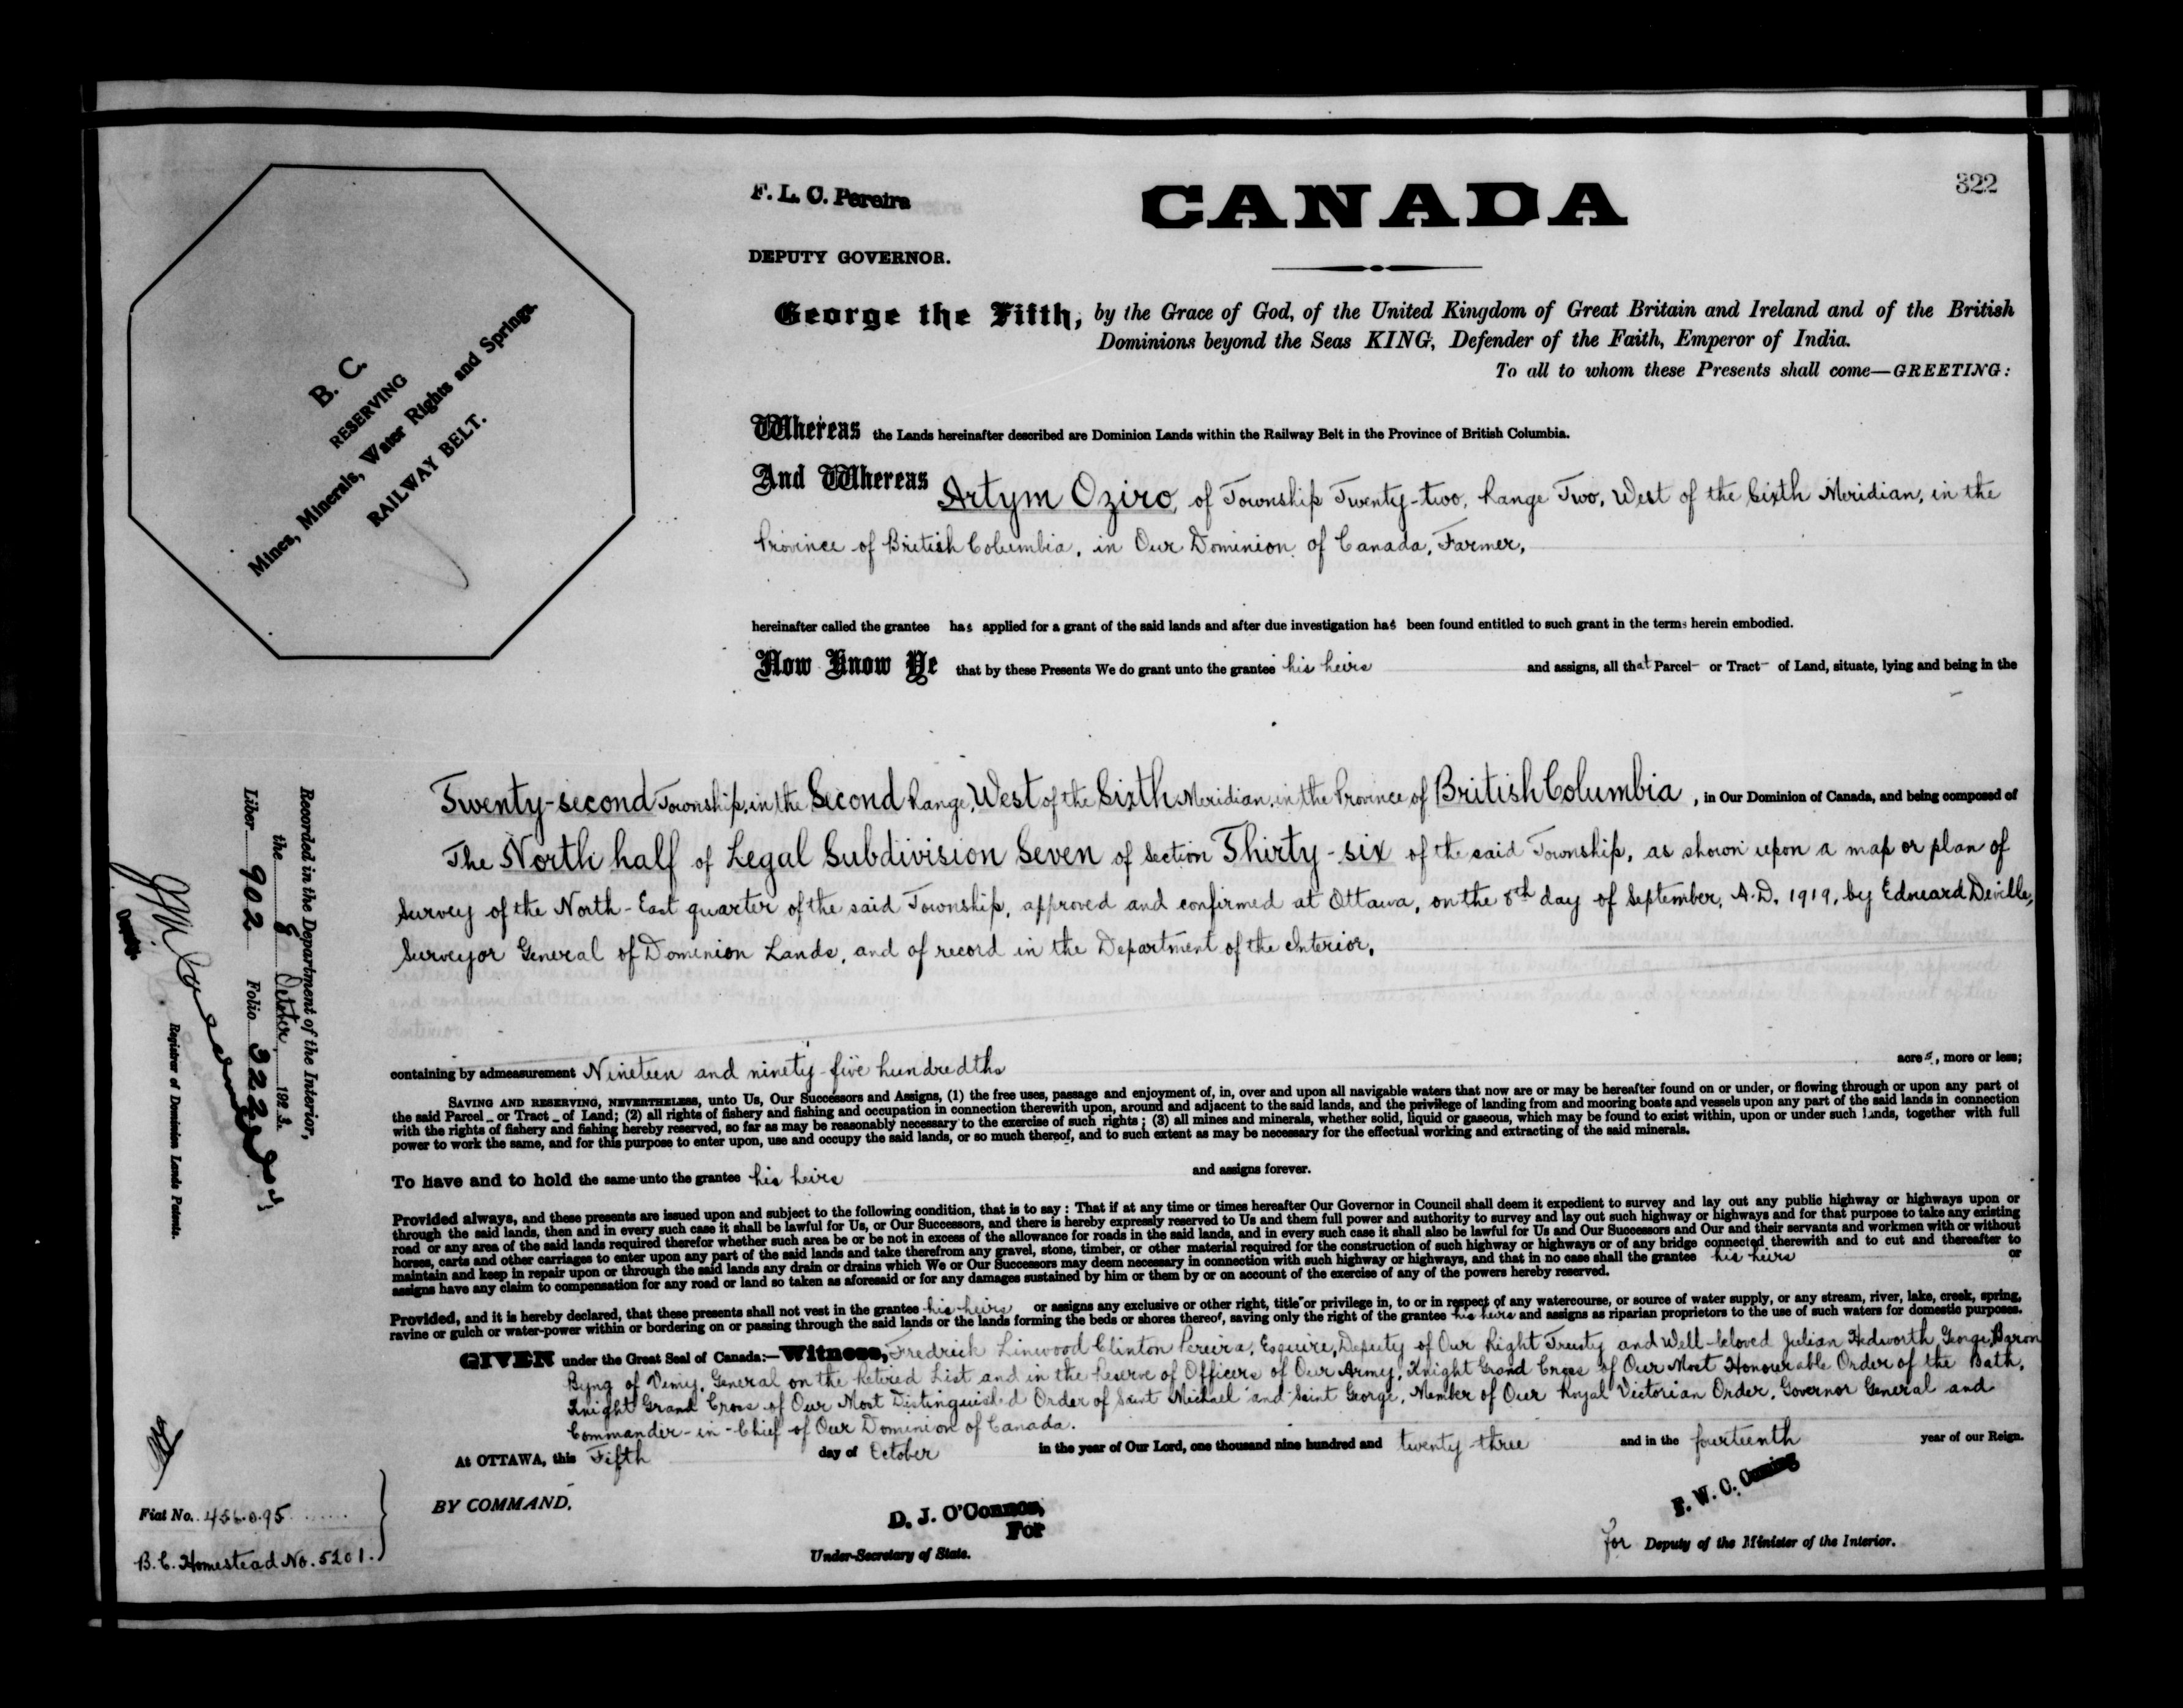 322
F. L. C. Pereira
CANADA
DEPUTY GOVERNOR.
B. C.
RESERVING
Mines, Minerals, Water Rights and Springs.
RAILWAY BELT.
George the Fifth, by the Grace of God, of the United Kingdom of Great Britain and Ireland and of the British
Dominions beyond the Seas KING, Defender of the Faith, Emperor of India.
To all to whom these Presents shall come—GREETING:
Whereas the Lands hereinafter described are Dominion Lands within the Railway Belt in the Province of British Columbia.
And Whereas Artym Oziro, of Township Twenty-two, Range Two, West of the Sixth Meridian, in the
Province of British Columbia, in Our Dominion of Canada, Farmer,
hereinafter called the grantee has applied for a grant of the said lands and after due investigation has been found entitled to such grant in the terms herein embodied.
Now Know Ye that by these Presents We do grant unto the grantee his heirs and assigns, all that Parcel or Tract of Land, situate, lying and being in the
Twenty-second Township, in the Second Range, West of the Sixth Meridian, in the Province of British Columbia, in Our Dominion of Canada, and being composed of
The North half of Legal Subdivision Seven of Section Thirty-six of the said Township, as shown upon a map or plan of
Survey of the North-East quarter of the said Township, approved and confirmed at Ottawa, on the 8th day of September, A.D. 1919, by Edouard Deville,
Surveyor General of Dominion Lands, and of record in the Department of the Interior.
containing by admeasurement Nineteen and ninety-five hundredths acres, more or less;
SAVING AND RESERVING, NEVERTHELESS, unto Us, Our Successors and Assigns, (1) the free uses, passage and enjoyment of, in, over and upon all navigable waters that now are or may be hereafter found on or under, or flowing through or upon any part of
the said Parcel or Tract of Land; (2) all rights of fishery and fishing and occupation in connection therewith upon, around and adjacent to the said lands, and the privilege of landing from and mooring boats and vessels upon any part of the said lands in connection
with the rights of fishery and fishing hereby reserved, so far as may be reasonably necessary to the exercise of such rights; (3) all mines and minerals, whether solid, liquid or gaseous, which may be found to exist within, upon or under such lands, together with full
power to work the same, and for this purpose to enter upon, use and occupy the said lands, or so much thereof, and to such extent as may be necessary for the effectual working and extracting of the said minerals.
To have and to hold the same unto the grantee his heirs and assigns forever.
Provided always, and these presents are issued upon and subject to the following condition, that is to say: That if at any time or times hereafter Our Governor in Council shall deem it expedient to survey and lay out any public highway or highways upon or
through the said lands, then and in every such case it shall be lawful for Us, or Our Successors, and there is hereby expressly reserved to Us and them full power and authority to survey and lay out such highway or highways and for that purpose to take any existing
road or any area of the said lands required therefor whether such area be or be not in excess of the allowance for roads in the said lands, and in every such case it shall also be lawful for Us and Our Successors and Our and their servants and workmen with or without
horses, carts and other carriages to enter upon any part of the said lands and take therefrom any gravel, stone, timber, or other material required for the construction of such highway or highways or of any bridge connected therewith and to cut and thereafter to
maintain and keep in repair upon or through the said lands any drain or drains which We or Our Successors may deem necessary in connection with such highway or highways, and that in no case shall the grantee his heirs or
assigns have any claim to compensation for any road or land so taken as aforesaid or for any damages sustained by him or them by or on account of the exercise of any of the powers hereby reserved.
Provided, and it is hereby declared, that these presents shall not vest in the grantee his heirs or assigns any exclusive or other right, title or privilege in, to or in respect of any watercourse, or source of water supply, or any stream, river, lake, creek, spring,
ravine or gulch or water-power within or bordering on or passing through the said lands or the lands forming the beds or shores thereof, saving only the right of the grantee his heirs and assigns as riparian proprietors to the use of such waters for domestic purposes.
GIVEN under the Great Seal of Canada:—Witness, Fredrick Linwood Clinton Pereira, Esquire, Deputy of Our Right Trusty and Well-beloved Julian Hedworth George, Baron
Byng of Vimy, General on the Retired List and in the Reserve of Officers of Our Army, Knight Grand Cross of Our Most Honourable Order of the Bath,
Knight Grand Cross of Our Most Distinguished Order of Saint Michael and Saint George, Member of Our Royal Victorian Order, Governor General and
Commander-in-Chief of Our Dominion of Canada.
At OTTAWA, this Fifth day of October in the year of Our Lord, one thousand nine hundred and twenty-three and in the fourteenth year of our Reign.
BY COMMAND,
D. J. O'Connor,
For
Under-Secretary of State.
F. W. C. Cuming
for Deputy of the Minister of the Interior.
Recorded in the Department of the Interior,
the 8 October 1923.
Liber 902 Folio 322
Deputy
Registrar of Dominion Lands Patents.
Fiat No.
B.C. Homestead No. 5201.